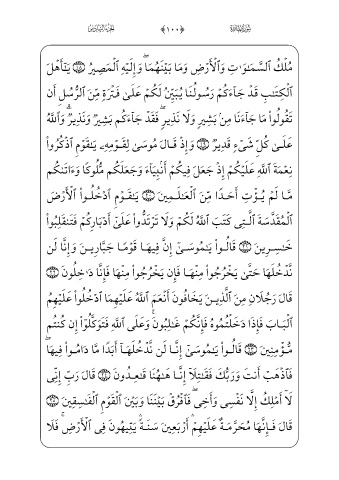 سورة المائدة (١٠٠) الجزء السادس
مُلْكُ ٱلسَّمَـٰوَٰتِ وَٱلْأَرْضِ وَمَا بَيْنَهُمَا ۖ وَإِلَيْهِ ٱلْمَصِيرُ ۝ يَـٰٓأَهْلَ
ٱلْكِتَـٰبِ قَدْ جَآءَكُمْ رَسُولُنَا يُبَيِّنُ لَكُمْ عَلَىٰ فَتْرَةٍ مِّنَ ٱلرُّسُلِ أَن
تَقُولُوا۟ مَا جَآءَنَا مِنۢ بَشِيرٍ وَلَا نَذِيرٍ ۖ فَقَدْ جَآءَكُم بَشِيرٌ وَنَذِيرٌ ۗ وَٱللَّهُ
عَلَىٰ كُلِّ شَىْءٍ قَدِيرٌ ۝ وَإِذْ قَالَ مُوسَىٰ لِقَوْمِهِۦ يَـٰقَوْمِ ٱذْكُرُوا۟
نِعْمَةَ ٱللَّهِ عَلَيْكُمْ إِذْ جَعَلَ فِيكُمْ أَنۢبِيَآءَ وَجَعَلَكُم مُّلُوكًا وَءَاتَىٰكُم
مَّا لَمْ يُؤْتِ أَحَدًا مِّنَ ٱلْعَـٰلَمِينَ ۝ يَـٰقَوْمِ ٱدْخُلُوا۟ ٱلْأَرْضَ
ٱلْمُقَدَّسَةَ ٱلَّتِى كَتَبَ ٱللَّهُ لَكُمْ وَلَا تَرْتَدُّوا۟ عَلَىٰٓ أَدْبَارِكُمْ فَتَنقَلِبُوا۟
خَـٰسِرِينَ ۝ قَالُوا۟ يَـٰمُوسَىٰٓ إِنَّ فِيهَا قَوْمًا جَبَّارِينَ وَإِنَّا لَن
نَّدْخُلَهَا حَتَّىٰ يَخْرُجُوا۟ مِنْهَا فَإِن يَخْرُجُوا۟ مِنْهَا فَإِنَّا دَٰخِلُونَ ۝
قَالَ رَجُلَانِ مِنَ ٱلَّذِينَ يَخَافُونَ أَنْعَمَ ٱللَّهُ عَلَيْهِمَا ٱدْخُلُوا۟ عَلَيْهِمُ
ٱلْبَابَ فَإِذَا دَخَلْتُمُوهُ فَإِنَّكُمْ غَـٰلِبُونَ ۚ وَعَلَى ٱللَّهِ فَتَوَكَّلُوٓا۟ إِن كُنتُم
مُّؤْمِنِينَ ۝ قَالُوا۟ يَـٰمُوسَىٰٓ إِنَّا لَن نَّدْخُلَهَآ أَبَدًا مَّا دَامُوا۟ فِيهَا ۖ
فَٱذْهَبْ أَنتَ وَرَبُّكَ فَقَـٰتِلَآ إِنَّا هَـٰهُنَا قَـٰعِدُونَ ۝ قَالَ رَبِّ إِنِّى
لَآ أَمْلِكُ إِلَّا نَفْسِى وَأَخِى ۖ فَٱفْرُقْ بَيْنَنَا وَبَيْنَ ٱلْقَوْمِ ٱلْفَـٰسِقِينَ ۝
قَالَ فَإِنَّهَا مُحَرَّمَةٌ عَلَيْهِمْ ۛ أَرْبَعِينَ سَنَةً ۛ يَتِيهُونَ فِى ٱلْأَرْضِ ۚ فَلَا